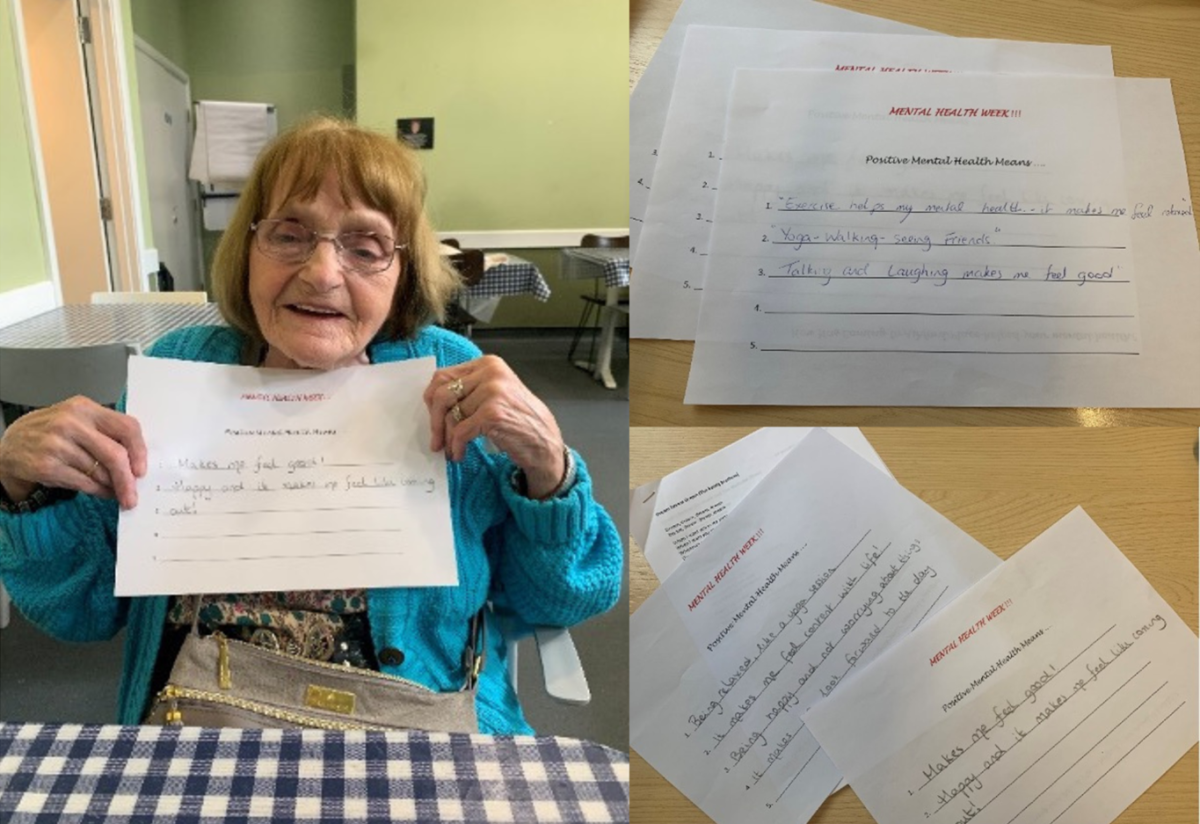 MENTAL HEALTH WEEK
Positive Mental Health Means
1. Makes me feel good!
2. Happy and it makes me feel like coming
3. out!
4.
5.
MENTAL HEALTH WEEK
MENTAL HEALTH WEEK!!!
Positive Mental Health Means ....
1. "Exercise helps my mental health - it makes me feel
2. "Yoga - Walking - seeing Friends"
3. Talking and Laughing makes me feel good"
4.
5.
MENTAL HEALTH WEEK!!!
Positive Mental Health Means ...
1. Being relaxed, like a yoga session
2. it makes me feel content with life!
3. Being happy and not worrying about things!
4. It makes look forward to the day
5.
MENTAL HEALTH WEEK!!!
Positive Mental Health Means...
1. Makes me feel good!
2. Happy and it makes me feel like coming
out!